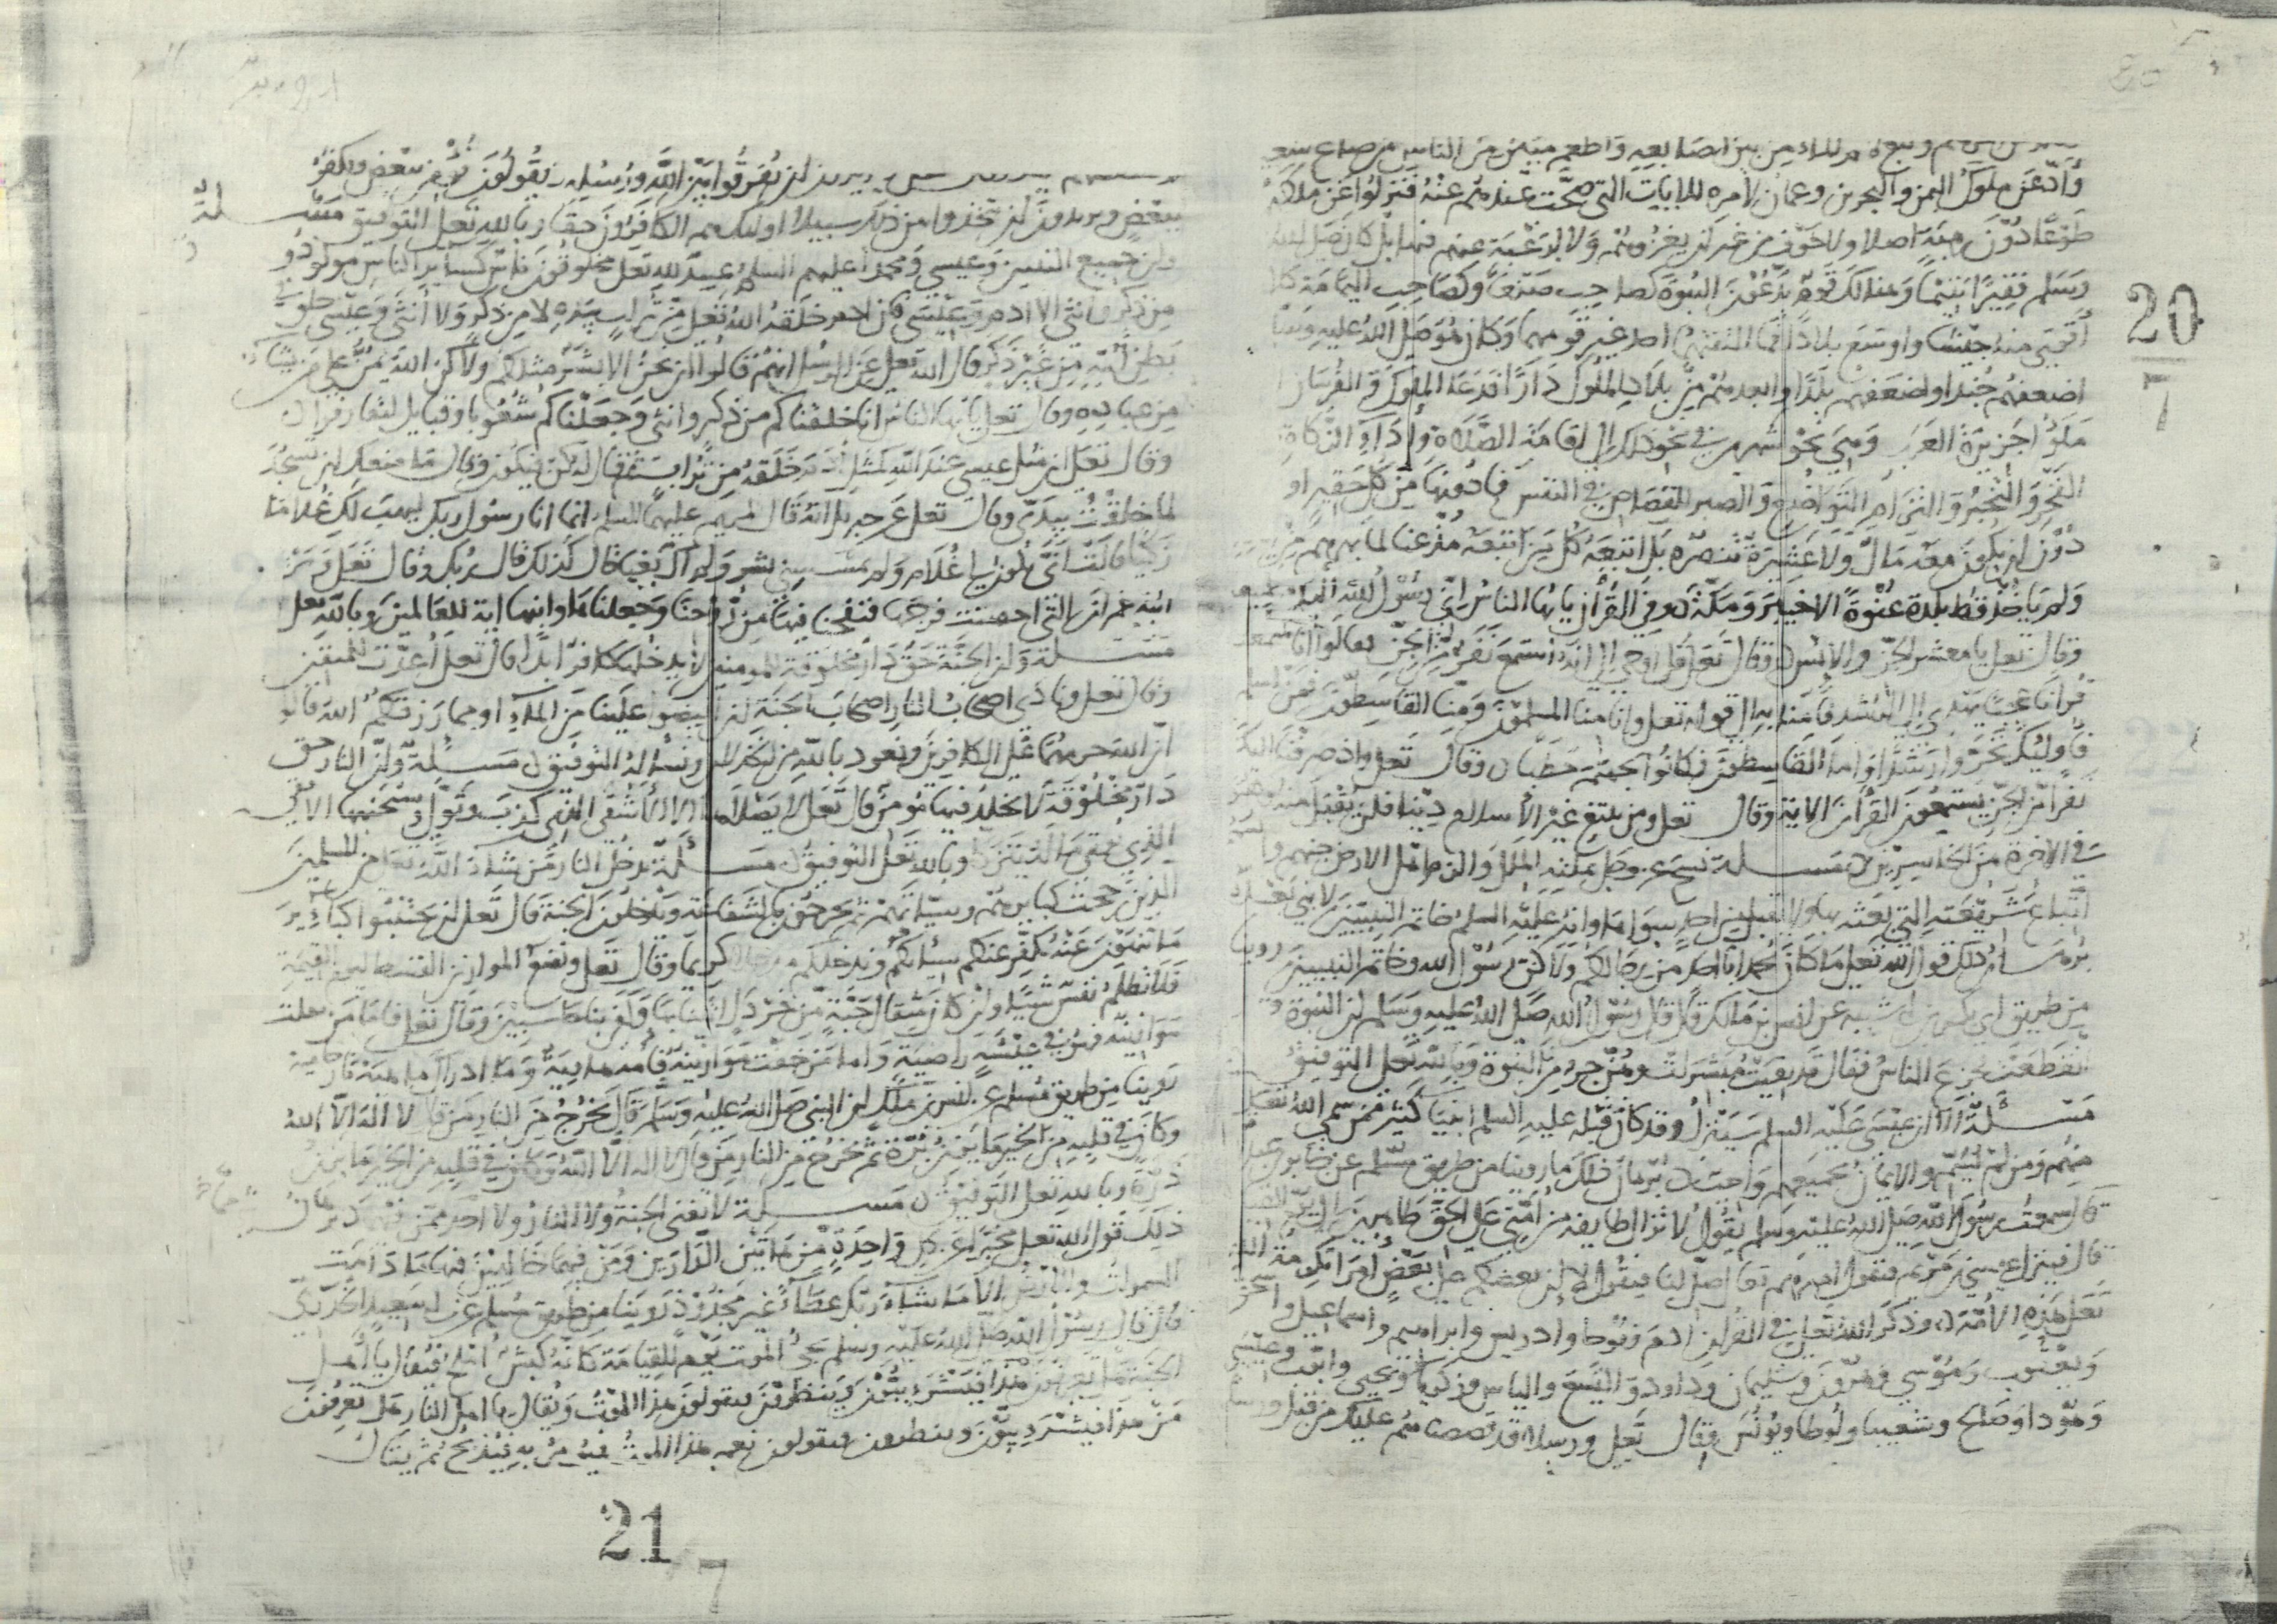 ونبع الماء من بين اصابعه واطعم مئين من الناس من صاع شعير
واذعن ملوك اليمن والبحرين وعمان لامره للايات التي صحت عندهم عنه فنزلوا عن ملكهم
طوعا دون رهبة اصلا ولا خوف من ان يغزوهم ولا لرغبة رغبهم فيها بل كان صلى الله
وسلم فقيرا يتيما وهنالك قوم يدعون النبوة كصاحب صنعا وكصاحب اليمامة كلا
اقوى منه جيشا واوسع بلادا فما التفت لهما احد غير قومهما وكان هو صلى الله عليه وسلم
اضعفهم جندا واضعفهم بلدا وابعدهم من بلاد الملوك دارا فدعا الملوك والفرسان
ملؤا جزيرة العرب وهي نحو شهرين في نحو ذلك الى اقامة الصلاة واداء الزكاة
الفخر والتجبر والتزام التواضع والصبر للقصاص في النفس فما دونها من كل حقير او
دون ان يكون معه مال ولا عشيرة تنصره بل اتبعه كل من اتبعه مذعنا لما بهرهم
ولم ياخذ قط بلدة عنوة الا خيبر ومكة وفي القرآن يا ايها الناس اني رسول الله اليكم جميعا
وقال تعلى يا معشر الجن والانس وقال تعلى قل اوحي الي انه استمع نفر من الجن فقالوا انا سمعنا
قرانا عجبا يهدي الى الرشد فامنا به الى قوله تعلى وانا منا المسلمون ومنا القاسطون فمن اسلم
فاوليك تحروا رشدا واما القاسطون فكانوا لجهنم حطبا وقال تعلى واذ صرفنا اليك
نفرا من الجن يستمعون القرآن الاية وقال تعلى ومن يبتغ غير الاسلام دينا فلن يقبل منه وهو
في الاخرة من الخاسرين مسـلة نسخ عز وجل بملته كل ملة والزم اهل الارض جنهم وا
اتباع شريعته التي بعثه بها ولا يقبل من احد سواها وانه عليه السلم خاتم النبيين لا نبي بعده
برهان ذلك قول الله تعلى ما كان محمد ابا احد من رجالكم ولاكن رسول الله وخاتم النبيين روينا
من طريق ابي بكر بن ابي شيبه عن انس بن مالك قال قال رسول الله صلى الله عليه وسلم ان النبوة
انقطعت فجزع الناس فقال قد بقيت مبشرات وهن جزء من النبوة وبالله تعلى التوفيق
مسـلة الا ان عيسى عليه السلم سينزل وقد كان قبله عليه السلم انبيا كثير ممن سمى الله تعلى
منهم ومن لم يسم والايمان بجميعهم واجب برهان ذلك ما روينا من طريق مسلم عن جابر بن عبد
قال سمعت رسول الله صلى الله عليه وسلم يقول لا تزال طايفه من امتي على الحق ظاهرين
قال فينزل عيسى بن مريم فيقول اميرهم تعال صل لنا فيقول لا ان بعضكم على بعض امرا تكرمة الله
تعلى هذه الامة وذكر الله تعلى في القرآن ادم ونوحا وادريس وابراهيم واسماعيل واسحق
ويعقوب وموسى وهرون وسليمان وداود واليسع والياس وزكريا ويحيى وايوب وعيسى
وهودا وصالح وشعيبا ولوطا ويونس وقال تعلى ورسلا قد قصصناهم عليك من قبل ورسلا
يريدون ان يفرقوا بين الله ورسله ويقولون نومن ببعض ونكفر
ببعض ويريدون ان يتخذوا بين ذلك سبيلا اوليك هم الكافرون حقا وبالله تعلى التوفيق مسـلة
وان جميع النبيين وعيسى ومحمد عليهم السلم عبيد لله تعلى مخلوقون ناس كساير الناس مولودون
من ذكر وانثى الا ادم وعيسى فان ادم خلقه الله تعلى من تراب بيده لا من ذكر ولا انثى وعيسى خلق
بطن امه من غير ذكر قال الله تعلى عن الرسل انهم قالوا ان نحن الا بشر مثلكم ولاكن الله يمن على من يشاء
من عباده وقال تعلى يا ايها الناس انا خلقناكم من ذكر وانثى وجعلناكم شعوبا وقبايل لتعارفوا
وقال تعلى ان مثل عيسى عند الله كمثل ادم خلقه من تراب ثم قال له كن فيكون وقال ما منعك ان تسجد
لما خلقت بيدي وقال تعلى عن جبريل انه قال لمريم عليهما السلم انما انا رسول ربك ليهب لك غلاما
زكيا قالت انى يكون لي غلام ولم يمسسني بشر ولم اك بغيا قال كذلك قال ربك وقال تعلى ومريم
ابنة عمران التي احصنت فرجها فنفخنا فيها من روحنا وجعلناها وابنها اية للعالمين وبالله تعلى
مسـلة وان الجنة حق دار مخلوقة للمومنين لا يدخلها كافر ابدا قال تعلى اعدت للمتقين
وقال تعلى ونادى اصحاب النار اصحاب الجنة ان افيضوا علينا من الماء او مما رزقكم الله قالوا
ان الله حرمهما على الكافرين ونعوذ بالله من الخذلان ونسئله التوفيق مسـئلة وان النار حق
دار مخلوقة لا يخلد فيها مومن قال تعلى لا يصلاها الا الاشقى الذي كذب وتولى وسيجنبها الاتقى
الذي يوتي ماله يتزكى وبالله تعلى التوفيق مسـئلة يدخل النار من شاء الله تعلى من المسلمين
الذين رجحت كبايرهم وسيئاتهم ثم يخرجون بالشفاعة ويدخلون الجنة قال تعلى ان تجتنبوا كبائر
ما تنهون عنه نكفر عنكم سيئاتكم وندخلكم مدخلا كريما وقال تعلى ونضع الموازين القسط ليوم القيمة
فلا تظلم نفس شيئا وان كان مثقال حبة من خردل اتينا بها وكفى بنا حاسبين وقال تعلى فاما من ثقلت
موازينه فهو في عيشة راضية واما من خفت موازينه فامه هاوية وما ادراك ما هيه نار حامية
روينا من طريق مسلم عن انس بن ملك ان النبي صلى الله عليه وسلم قال يخرج من النار من قال لا اله الا الله
وكان في قلبه من الخير ما يزن برة ثم يخرج من النار من قال لا اله الا الله وكان في قلبه من الخير ما يزن
ذرة وبالله تعلى التوفيق مسـئلة لا تفنى الجنة ولا النار ولا احد ممن فيهما برهان
ذلك قول الله تعلى مخبرا عن كل واحدة من هاتين الدارين ومن فيهما خالدين فيها ما دامت
السموات والارض الا ما شاء ربك عطاء غير مجذوذ روينا من طريق مسلم عن ابي سعيد الخدري
قال قال رسول الله صلى الله عليه وسلم يجاء بالموت يوم القيامة كانه كبش املح فيقال يا اهل
الجنة هل تعرفون هذا فيشرءبون وينظرون ويقولون هذا الموت ويقال يا اهل النار هل تعرفون
من هذا فيشرءبون وينظرون فيقولون نعم هذا الموت فيومر به فيذبح ثم يقال
20
7
21
7